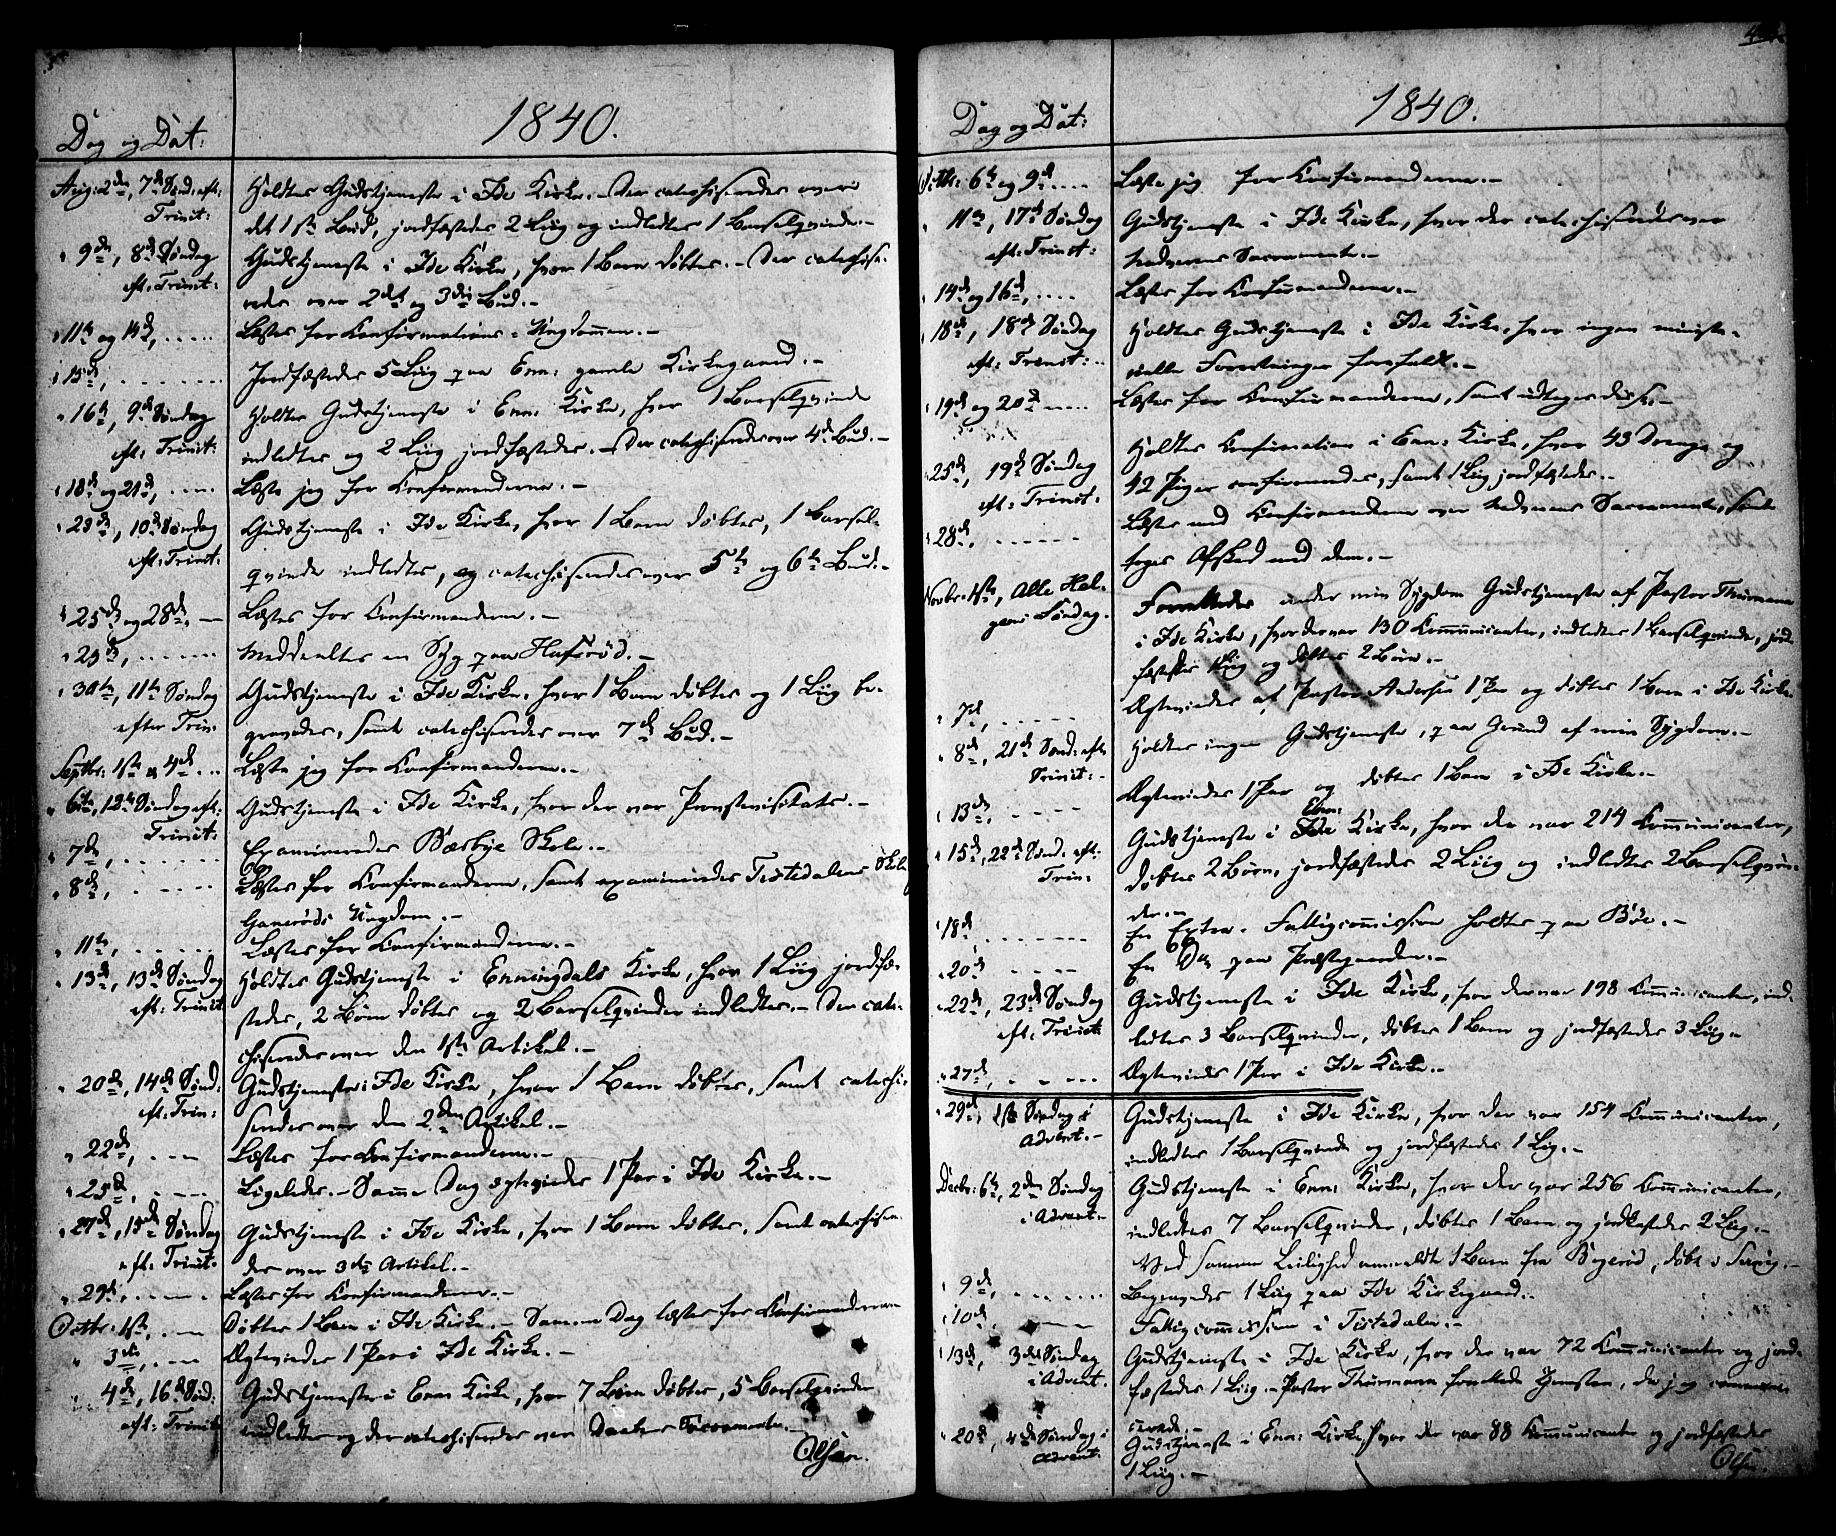 Dag og Dat:
1840.
Aug: 2den, 7de Sønd: eft:
Trinit:
Holdtes Gudstjeneste i Ide Kirke. Der catechiseredes over
det 1ste Bud, jordfæstedes 2 Liig og indledtes 1 Barselqvinde.-
" 9de, 8de Søndag
eft: Trinit:
Gudstjeneste i Ide Kirke, hvor 1 Barn døbtes.- Der catechise-
redes over 2det og 3die Bud.-
" 11te og 14de, .....
Læstes for Confirmations-Ungdommen.-
" 15de, .......
Jordfæstedes 5 Liig paa Enn: gamle Kirkegaard.-
" 16te, 9de Søndag
eft: Trinit:
Holdtes Gudstjeneste i Enn: Kirke, hvor 1 Barselqvinde
indledtes og 2 Liig jordfæstedes. Der catechiseredes over 4de Bud.-
" 18de og 21de, ....
Læste jeg for Confirmanderne.-
" 23de, 10de Søndag
eft: Trinit:
Gudstjeneste i Ide Kirke, hvor 1 Barn døbtes, 1 Barsel-
qvinde indledtes, og catechiseredes over 5te og 6te Bud.-
" 25de og 28de, --
Læstes for Confirmanderne.-
" 29de, ......
Meddeeltes en Syg paa Hafsrød.-
" 30te, 11te Søndag
efter Trin:
Gudstjeneste i Ide Kirke, hvor 1 Barn døbtes og 1 Liig be-
gravedes, samt catechiseredes over 7de Bud.-
Septbr: 1ste og 4de ...
Læste jeg for Confirmanderne.-
" 6te, 12te Søndag eft:
Trinit:
Gudstjeneste i Ide Kirke, hvor der var Provstevisitats.-
" 7de, ......
Examineredes Bærbye Skole.-
" 8de, . ....
Læstes for Confirmanderne, samt examineredes Tistedalens Skole
Ganerøds Ungdom.-
" 11te, ......
Læstes for Confirmanderne.-
" 13de, 13de Søndag
eft: Trinit
Holdtes Gudstjeneste i Enningdals Kirke, hvor 1 Liig jordfæ-
stedes, 2 Børn døbtes og 2 Barselqvinder indledtes.- Der cate-
chiseredes over den 1ste Artikel.-
" 20de, 14de Sønd:
eft: Trin:
Gudstjeneste i Ide Kirke, hvor 1 Barn døbtes, samt catechi-
seredes over den 2den Artikel.-
" 22de, . --
Læstes for Confirmanderne.-
" 25de, . ---
Ligeledes.- Samme Dag ægteviedes 1 Par i Ide Kirke.-
" 27de, 15de Søndag
eft: Trinit:
Gudstjeneste i Ide Kirke, hvor 1 Barn døbtes, samt catechisere-
des over 3die Artikel.-
" 29de, . -- .
Læstes for Confirmanderne.-
Octbr: 1ste, . --
Døbtes 1 Barn i Ide Kirke.- Samme Dag læstes for Confirmanderne
" 3die, . --
Ægteviedes 1 Par i Ide Kirke.-
" 4de, 16de Sønd:
eft: Trinit:
Gudstjeneste i Enn: Kirke, hvor 7 Børn døbtes, 5 Barselqvinder
indledtes og der catechiseredes over Daabens Sacramente.-
Olsen.
Dag og Dat:
1840.
Octbr: 6te og 9de ....
Læste jeg for Confirmanderne.-
" 11te, 17de Søndag
eft: Trinit:
Gudstjeneste i Ide Kirke, hvor der catechiseredes over
Nadverens Sacramente.-
" 14de og 16de, ....
Læstes for Confirmanderne.-
" 18de, 18de Søndag
eft: Trinit: ..
Holdtes Gudstjeneste i Ide Kirke, hvor ingen ministe-
rielle Forretninger forefaldt.-
" 19de og 20de ....
Læstes for Confirmanderne, samt udtoges disse.-
" 25de, 19de Søndag
eft: Trinit:
Holdtes Confirmation i Enn: Kirke, hvor 43 Drenge og
42 Piger confirmeredes, samt 1 Liig jordfæstedes.-
" 28de, ......
Læstes med Confirmanderne over Nadverens Sacramente, samt
toges Afsked med dem.-
Novbr: 1ste, Alle Hel-
gens Søndag.
Forrettedes under min Sygdom Gudstjeneste af Pastor Thurmann
i Ide Kirke, hvor der var 130 Communicanter, indledtes 1 Barselqvinde, jord-
fæstedes 1 Liig og døbtes 2 Børn.-
" 7de, .....
Ægteviedes af Pastor 1 Par og døbtes 1 Barn i Ide Kirke
" 8de, 21de Sønd: eft:
Trinit: -
Holdtes ingen Gudstjeneste, paa Grund af min Sygdom.-
" 13de, . ---
Ægteviedes 1 Par og døbtes 1 Barn i Ide Kirke.-
" 15de, 22de Sønd. eft:
Trin:
Gudstjeneste i Enn: Kirke, hvor der var 214 Communicanter,
døbtes 2 Børn, jordfæstedes 2 Liig og indledtes 2 Barselqvin-
der.-
" 18de . -----
En Extra-Fattigcommission holdtes paa Bøe.-
" 20de ----
En Do paa Præstegaarden.-
" 22de, 23de Søndag
eft: Trinit:
Gudstjeneste i Ide Kirke, hvor der var 198 Communicanter, ind-
ledtes 3 Barselqvinder, døbtes 1 Barn og jordfæstedes 3 Liig.-
" 27de, . - ---
Ægteviedes 1 Par i Ide Kirke.-
" 29de, 1ste Søndag i
Advent.-
Gudstjeneste i Ide Kirke, hvor der var 154 Communicanter,
indledtes 1 Barselqvinde og jordfæstedes 1 Liig.-
Decbr: 6te, 2den Søndag
i Advent.-
Gudstjeneste i Enn: Kirke, hvor der var 256 Communicanter,
indledtes 7 Barselqvinder, døbtes 1 Barn og jordfæstedes 2 Liig.-
Ved samme Leilighed anmeldt 1 Barn fra døbt i Sverig.-
" 9de, ......
Begravedes 1 Liig paa Ide Kirkegaard.-
" 10de, . ----
Fattigcommission i Tistedalen.-
" 13de, 3die Søndag
i Advent.
Gudstjeneste i Ide Kirke, hvor der var 72 Communicanter og jord-
fæstedes 1 Liig.- Pastor Thurmann forrettede Tjenesten, da jeg communi-
cerede.-
" 20de, 4de Søndag i
Advent.
Gudstjeneste i Enn: Kirke, hvor der var 88 Communicanter og jordfæstedes
1 Liig.-
Olsen.